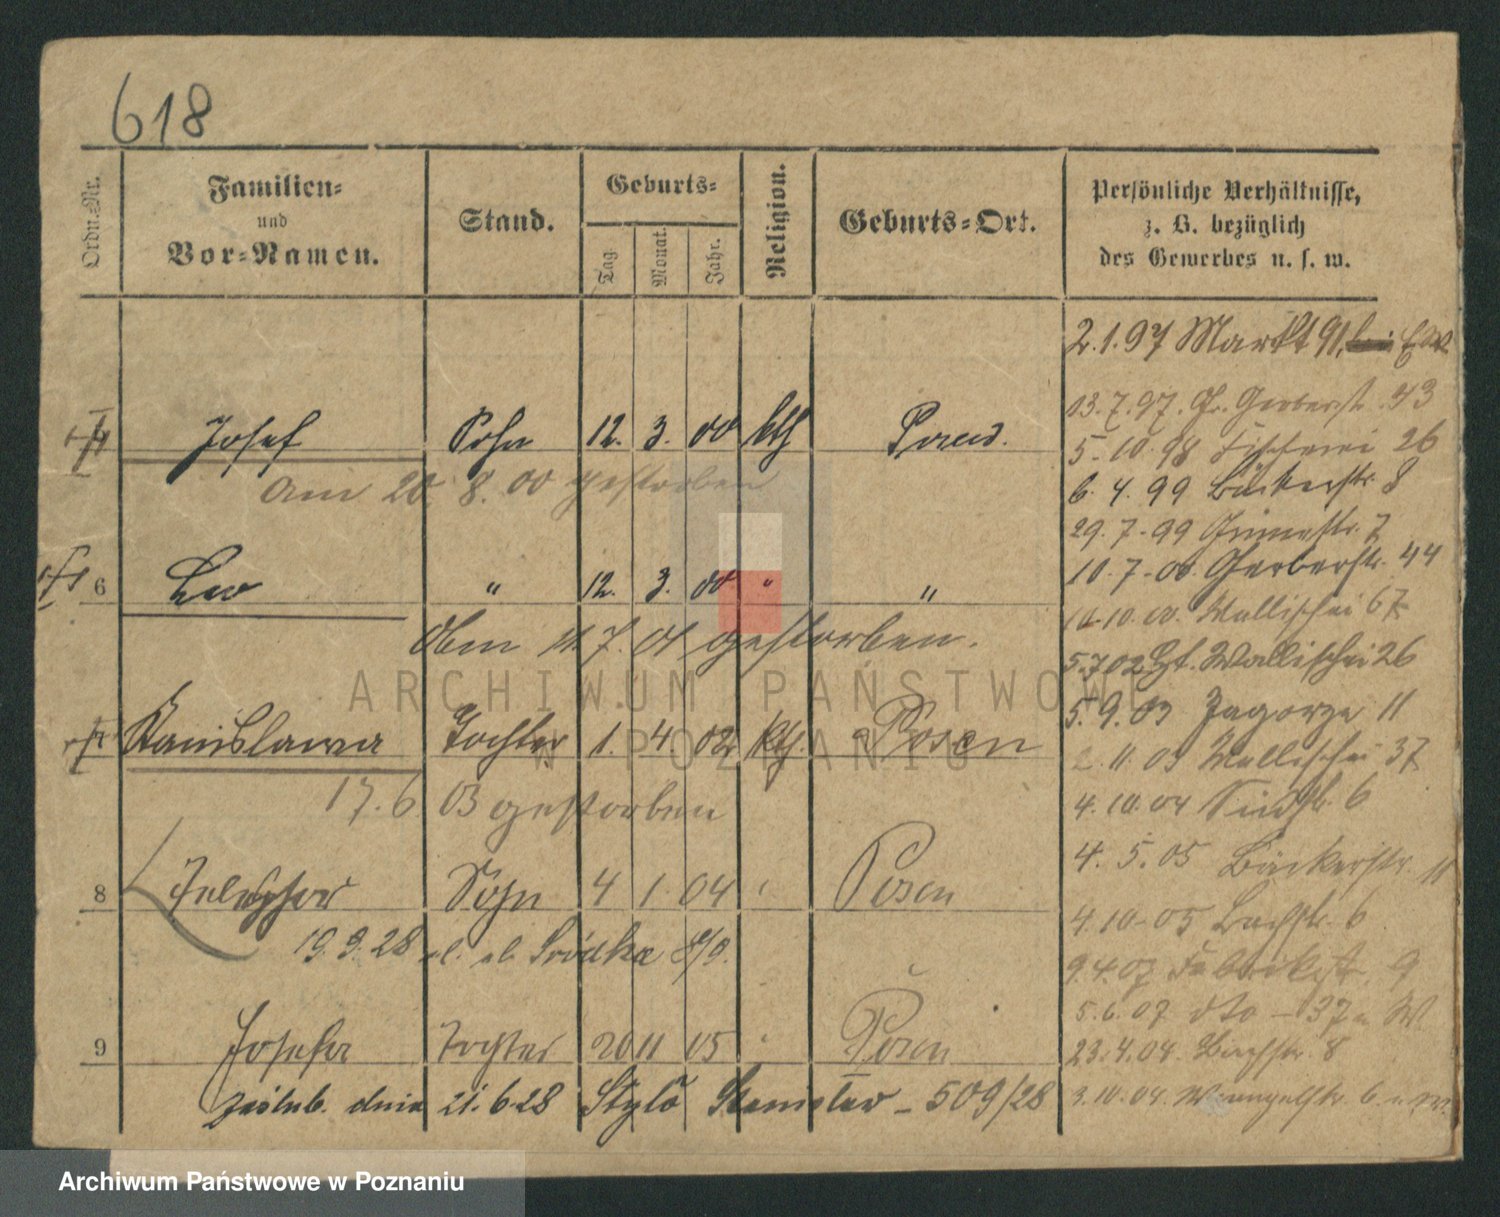 618
Ordn.-Nr.
Familien-
und
Vor-Namen.
Stand.
Geburts-
Tag
Monat.
Jahr.
Religion.
Geburts-Ort.
Persönliche Verhältnisse,
z. B. bezüglich
des Gewerbes u. s. w.
Josef Sohn 12. 3. 00 kth Posen.
am 20 8. 00 gestorben
6 Leo " 12. 3. 00 " "
7. 01 gestorben.
Stanislawa Tochter 1. 4. 02 kth. Posen
17. 6 03 gestorben
8 Telesphor Sohn 4 1. 04 Posen
19. 9. 28 Środka 8/9.
9 Josefa Tochter 20 11 05 Posen
zaślub. dnia 21. 6. 28 Stanisław - 509/28
2. 1. 97 Markt 91,
03. 7. 97. Gr. Gerberstr. 43
5. 10. 98 Fischerei 26
6. 4. 99 Bäckerstr. 8
29. 7. 99 7
10. 7. 00. Gerberstr. 44
10. 00. Wallischei 67
5. 7 02 Wallischei 26
5. 9. 03 Zagorze 11
2. 11. 03 Wallischei 37
4. 10. 04 6
4. 5. 05 Bäckerstr. 11
4. 10. 05 Bachstr. 6
9. 4. 07 Fabrikstr. 9
5. 6. 07 dto - 37
23. 4. 08. Bachstr. 8
3. 10. 08. 6
ARCHIWUM PAŃSTWOWE
W POZNANIU
Archiwum Państwowe w Poznaniu